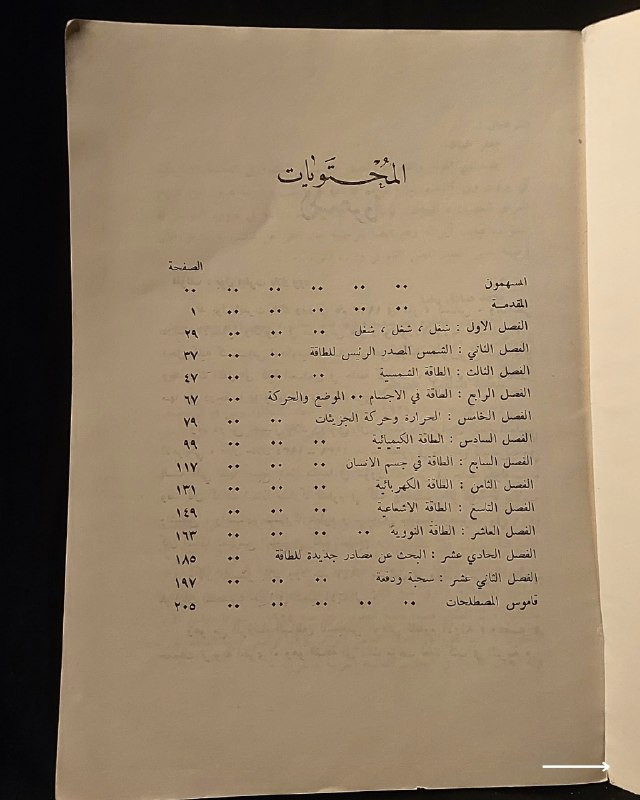 المُحْتَوَيات
الصفحة
المسهمون .. .. .. .. .. ..
المقدمة .. .. .. .. .. ١
الفصل الاول : شغل ، شغل ، شغل .. .. .. ٢٩
الفصل الثاني : الشمس المصدر الرئيس للطاقة .. .. ٣٧
الفصل الثالث : الطاقة الشمسية .. .. .. ٤٧
الفصل الرابع : الطاقة في الاجسام .. الموضع والحركة .. ٦٧
الفصل الخامس : الحرارة وحركة الجزيئات .. .. ٧٩
الفصل السادس : الطاقة الكيميائية .. .. .. ٩٩
الفصل السابع : الطاقة في جسم الانسان .. .. .. ١١٧
الفصل الثامن : الطاقة الكهربائية .. .. .. ١٣١
الفصل التاسع : الطاقة الاشعاعية .. .. .. ١٤٩
الفصل العاشر : الطاقة النووية .. .. .. .. ١٦٣
الفصل الحادي عشر : البحث عن مصادر جديدة للطاقة .. ١٨٥
الفصل الثاني عشر : سحبة ودفعة .. .. .. ١٩٧
قاموس المصطلحات .. .. .. .. .. ٢٠٥